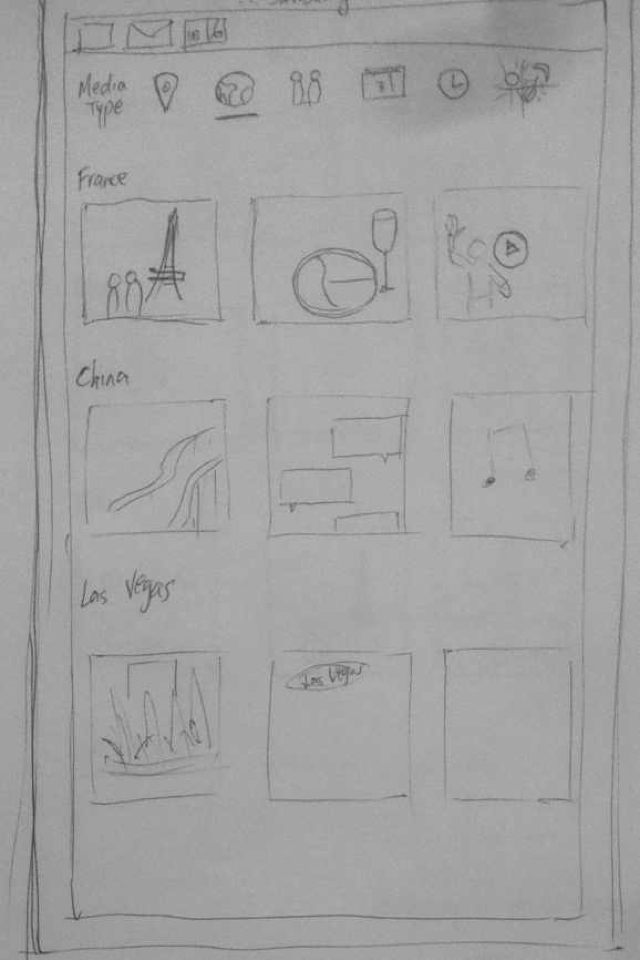 Media
Type
France
China
Las Vegas
Las Vegas